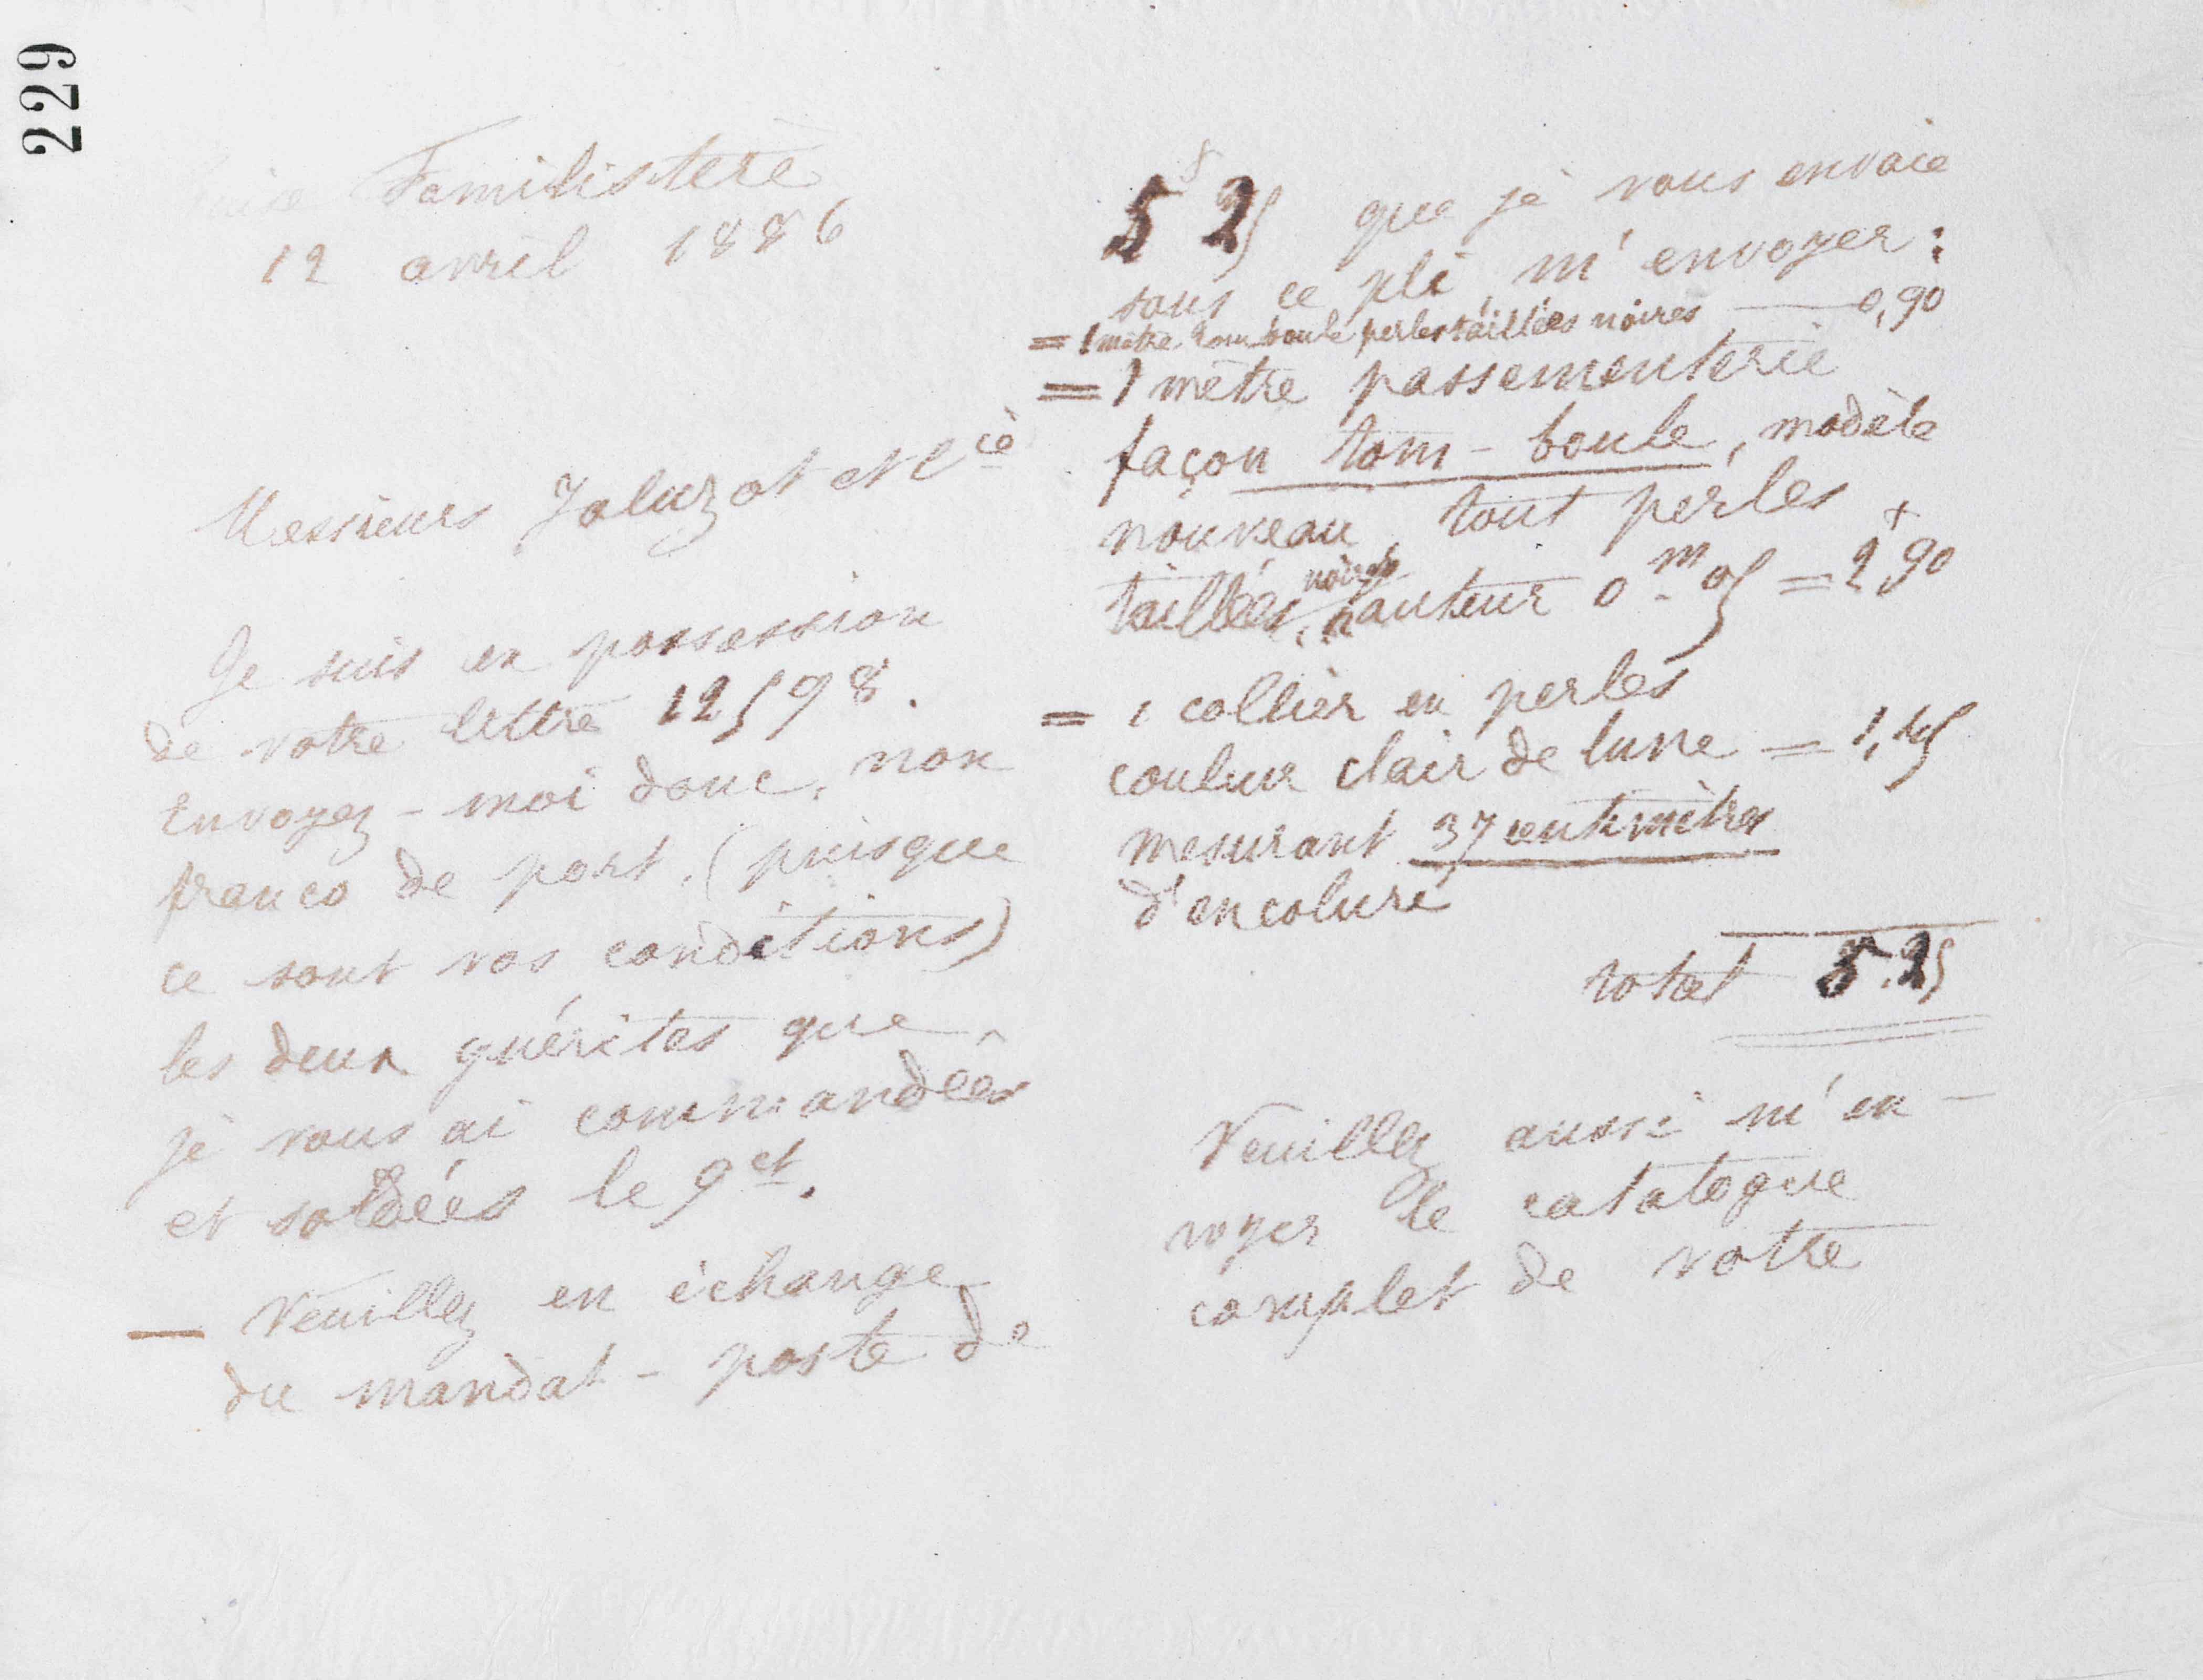 229
Guise Familistère
12 avril 1886
Messieurs Jaluzot et Cie
Je suis en possession
de votre lettre 12598.
Envoyez-moi donc, non
franco de port, (puisque
ce sont vos conditions)
les deux guérites que
je vous ai commandées
et soldées le 9 ct.
— Veuillez en échange
du mandat-poste de
5f 25 que je vous envoie
sous ce pli m'envoyer :
= 1 mètre tom-boule perles taillées noires — 0,90
= 1 mètre passementerie
façon tom-boule, modèle
nouveau, tout perles +
taillées, noires hauteur 0m05 = 2,90
= 1 collier en perles
couleur clair de lune = 1,45
mesurant 37 centimètres
d'encolure
total 5.25
Veuillez aussi m'en-
voyer le catalogue
complet de votre